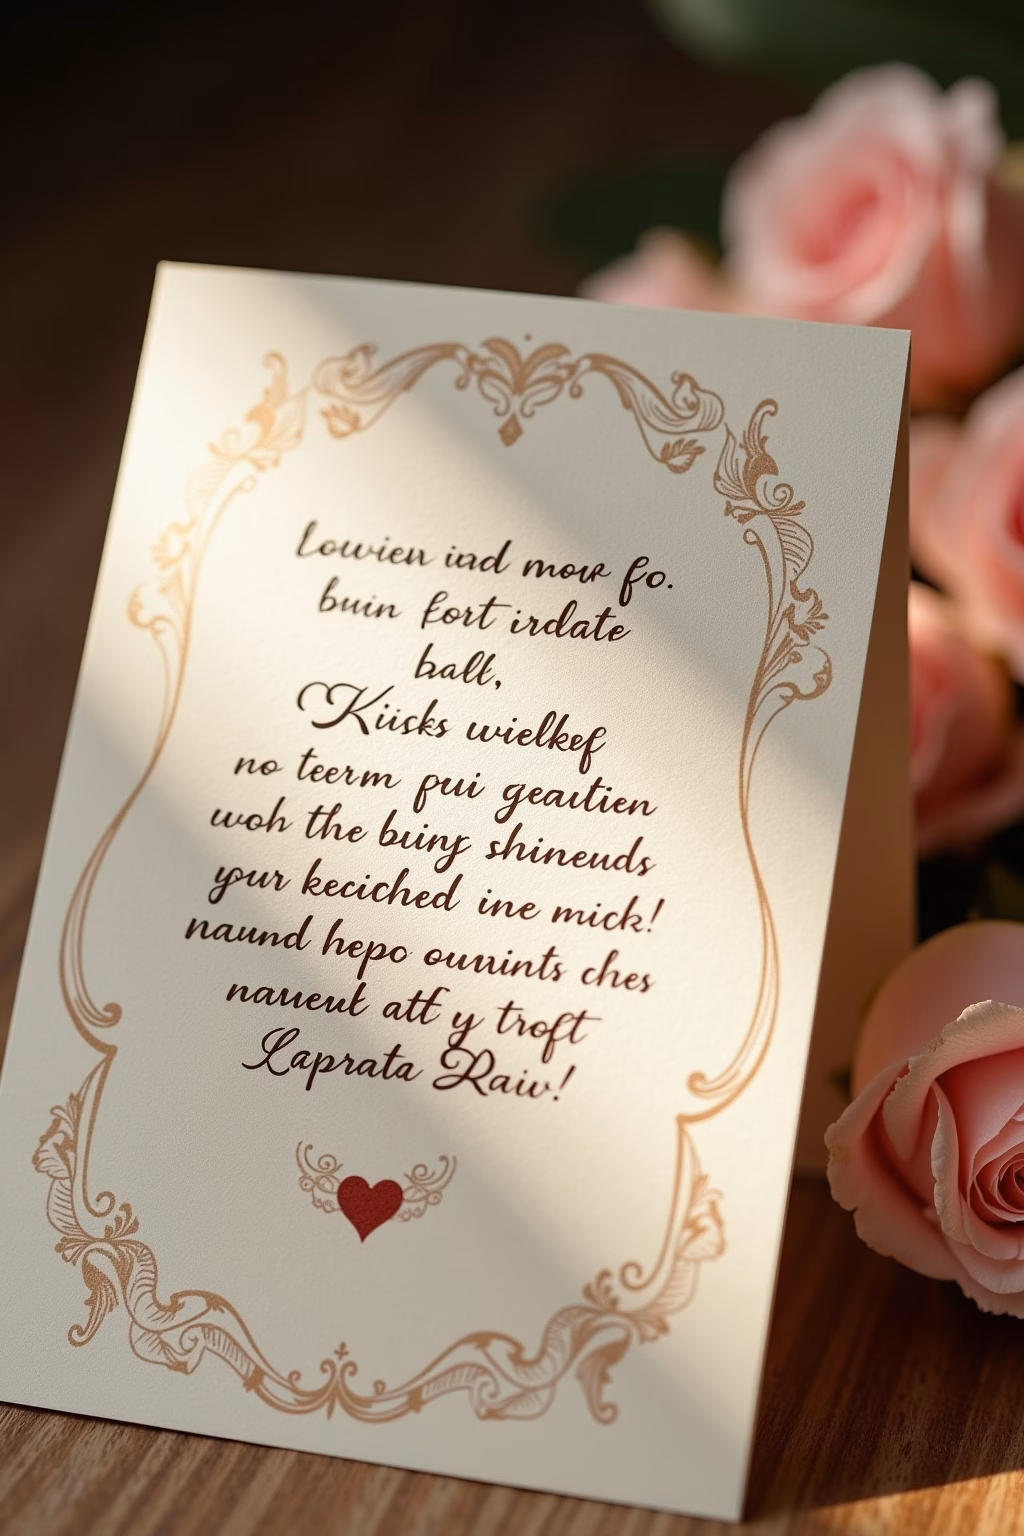 Lowien ind mow fo.
buin fort irdate
ball,
Kiisks wielkef
no teerm pui geautien
woh the buing shineuds
your keciched ine mick!
naund hepo ounints ches
naueut atf y troft
Laprata Raiv!